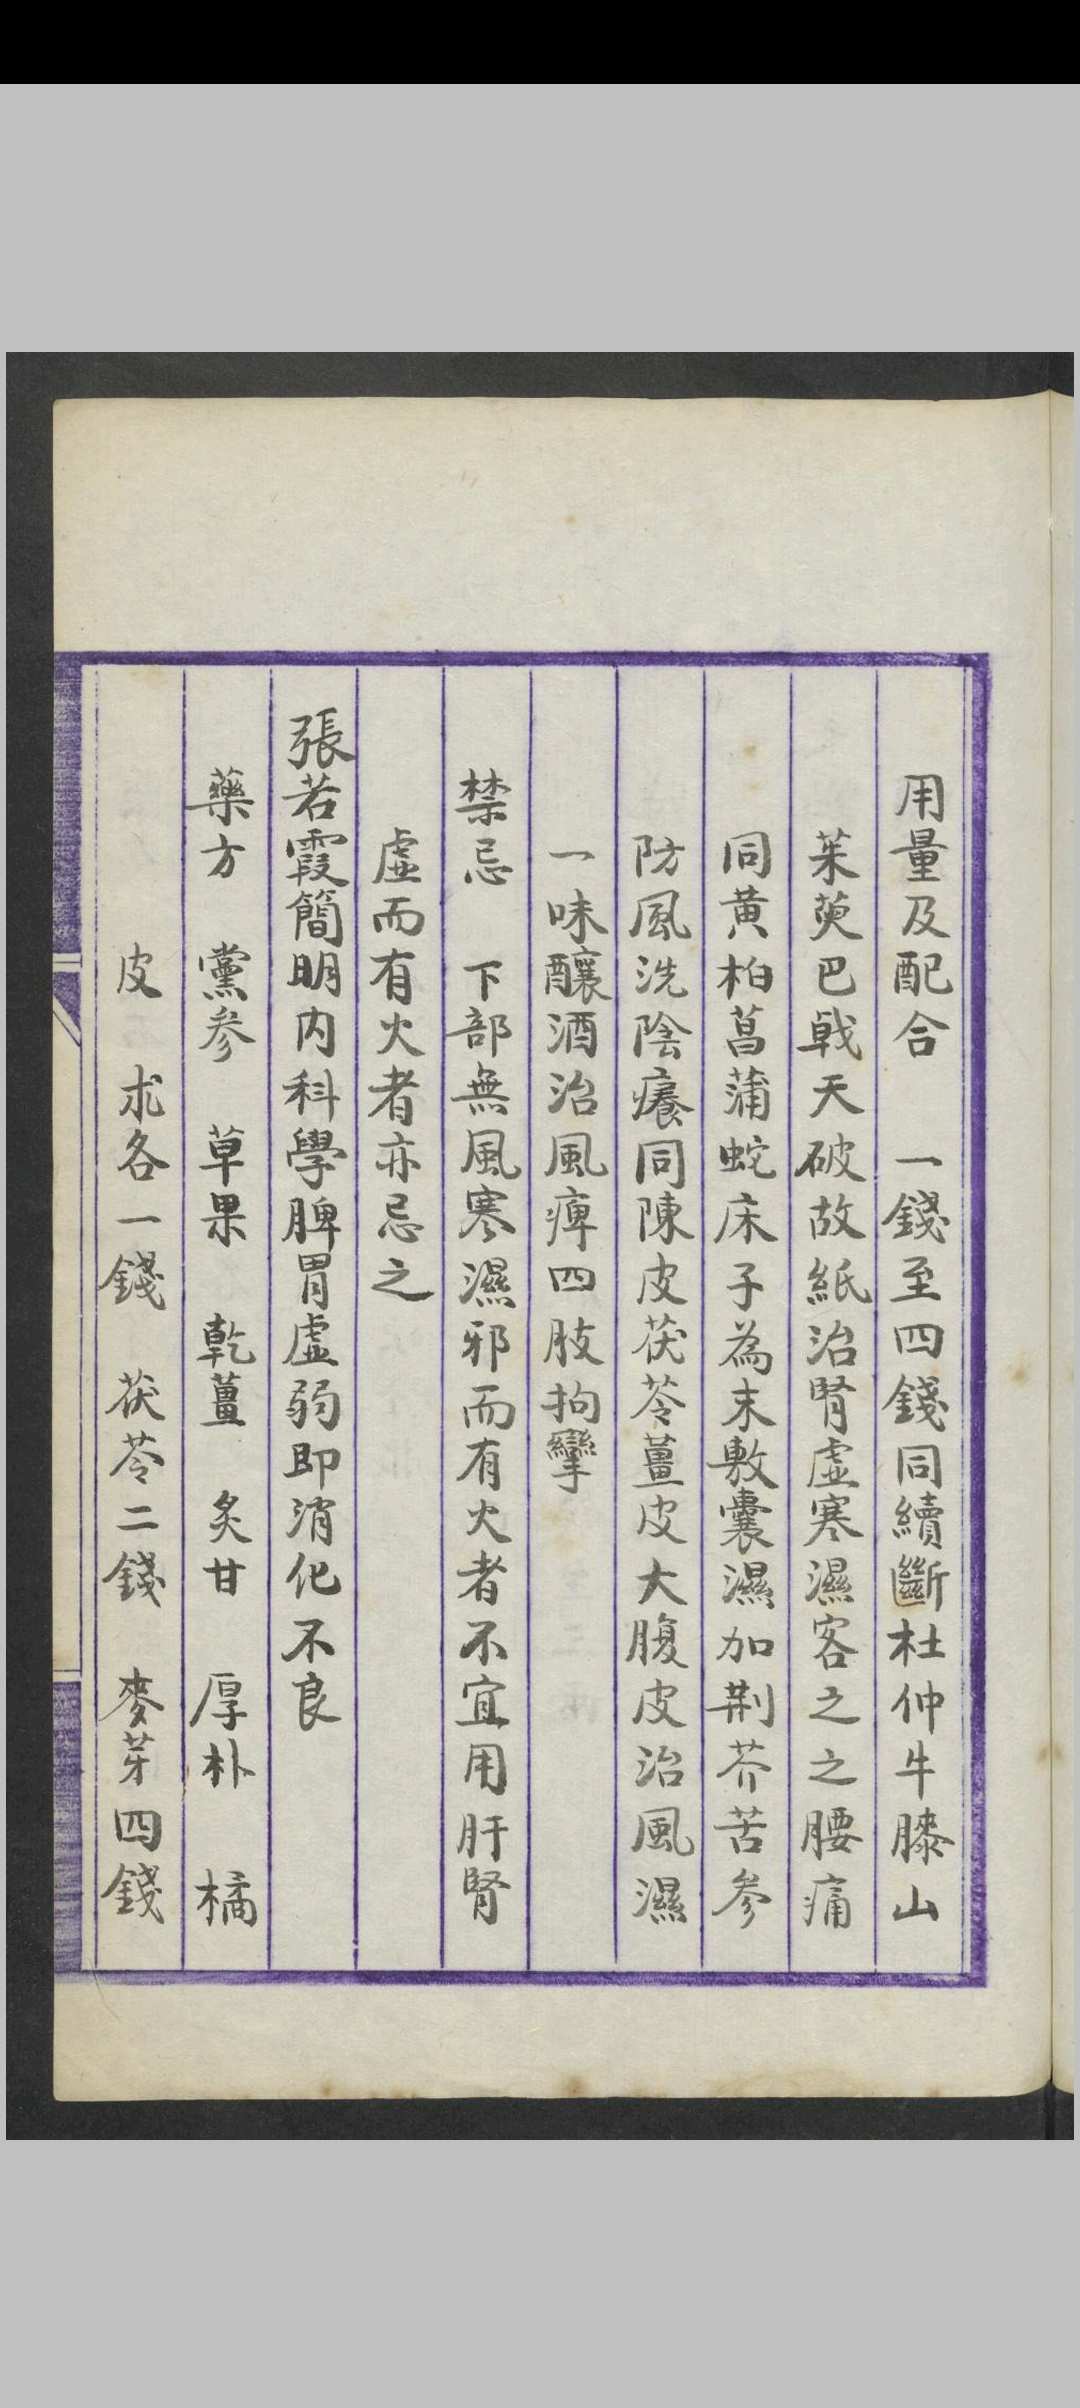 用量及配合　一錢至四錢同續斷杜仲牛膝山
茱萸巴戟天破故紙治腎虛寒濕客之之腰痛
同黃柏菖蒲蛇床子為末敷囊濕加荆芥苦參
防風洗陰癢同陳皮茯苓薑皮大腹皮治風濕
一味釀酒治風痺四肢拘攣
禁忌　下部無風寒濕邪而有火者不宜用肝腎
虛而有火者亦忌之
張若霞簡明内科學脾胃虛弱即消化不良
藥方　黨參　草果　乾薑　炙甘　厚朴　橘
皮　朮各一錢　茯苓二錢　麥芽四錢